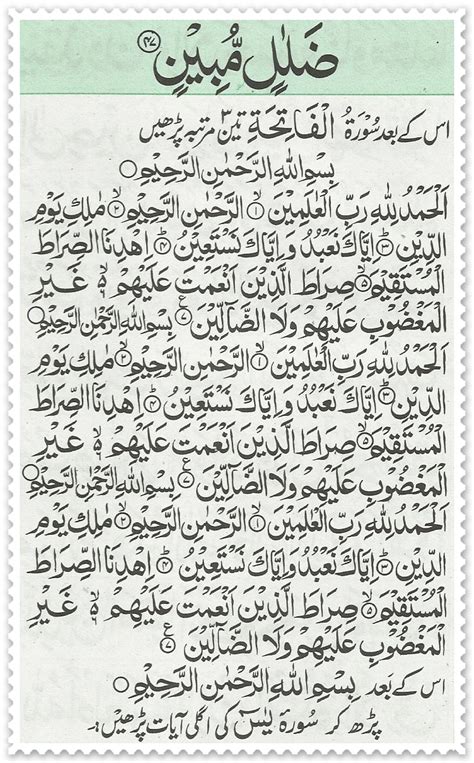 ضَلٰلٍ مُّبِیْنٍ ﴿۴۷﴾
اس کے بعد سُوْرَۃُ الْفَاتِحَۃِ تین ۳ مرتبہ پڑھیں
بِسْمِ اللهِ الرَّحْمٰنِ الرَّحِیْمِ ○
اَلْحَمْدُ لِلّٰهِ رَبِّ الْعٰلَمِیْنَ ۙ﴿۱﴾ الرَّحْمٰنِ الرَّحِیْمِ ۙ﴿۲﴾ مٰلِكِ یَوْمِ
الدِّیْنِ ؕ﴿۳﴾ اِیَّاكَ نَعْبُدُ وَ اِیَّاكَ نَسْتَعِیْنُ ؕ﴿۴﴾ اِهْدِنَا الصِّرَاطَ
الْمُسْتَقِیْمَ ۙ﴿۵﴾ صِرَاطَ الَّذِیْنَ اَنْعَمْتَ عَلَیْهِمْ ۙ۬ غَیْرِ
الْمَغْضُوْبِ عَلَیْهِمْ وَلَا الضَّآلِّیْنَ ﴿۷﴾ بِسْمِ اللهِ الرَّحْمٰنِ الرَّحِیْمِ ○
اَلْحَمْدُ لِلّٰهِ رَبِّ الْعٰلَمِیْنَ ۙ﴿۱﴾ الرَّحْمٰنِ الرَّحِیْمِ ۙ﴿۲﴾ مٰلِكِ یَوْمِ
الدِّیْنِ ؕ﴿۳﴾ اِیَّاكَ نَعْبُدُ وَ اِیَّاكَ نَسْتَعِیْنُ ؕ﴿۴﴾ اِهْدِنَا الصِّرَاطَ
الْمُسْتَقِیْمَ ۙ﴿۵﴾ صِرَاطَ الَّذِیْنَ اَنْعَمْتَ عَلَیْهِمْ ۙ۬ غَیْرِ
الْمَغْضُوْبِ عَلَیْهِمْ وَلَا الضَّآلِّیْنَ ﴿۷﴾ بِسْمِ اللهِ الرَّحْمٰنِ الرَّحِیْمِ ○
اَلْحَمْدُ لِلّٰهِ رَبِّ الْعٰلَمِیْنَ ۙ﴿۱﴾ الرَّحْمٰنِ الرَّحِیْمِ ۙ﴿۲﴾ مٰلِكِ یَوْمِ
الدِّیْنِ ؕ﴿۳﴾ اِیَّاكَ نَعْبُدُ وَ اِیَّاكَ نَسْتَعِیْنُ ؕ﴿۴﴾ اِهْدِنَا الصِّرَاطَ
الْمُسْتَقِیْمَ ۙ﴿۵﴾ صِرَاطَ الَّذِیْنَ اَنْعَمْتَ عَلَیْهِمْ ۙ۬ غَیْرِ
الْمَغْضُوْبِ عَلَیْهِمْ وَلَا الضَّآلِّیْنَ ﴿۷﴾
اس کے بعد بِسْمِ اللهِ الرَّحْمٰنِ الرَّحِیْمِ ○
پڑھ کر سُورۂ یٰسٓ کی اگلی آیات پڑھیں۔